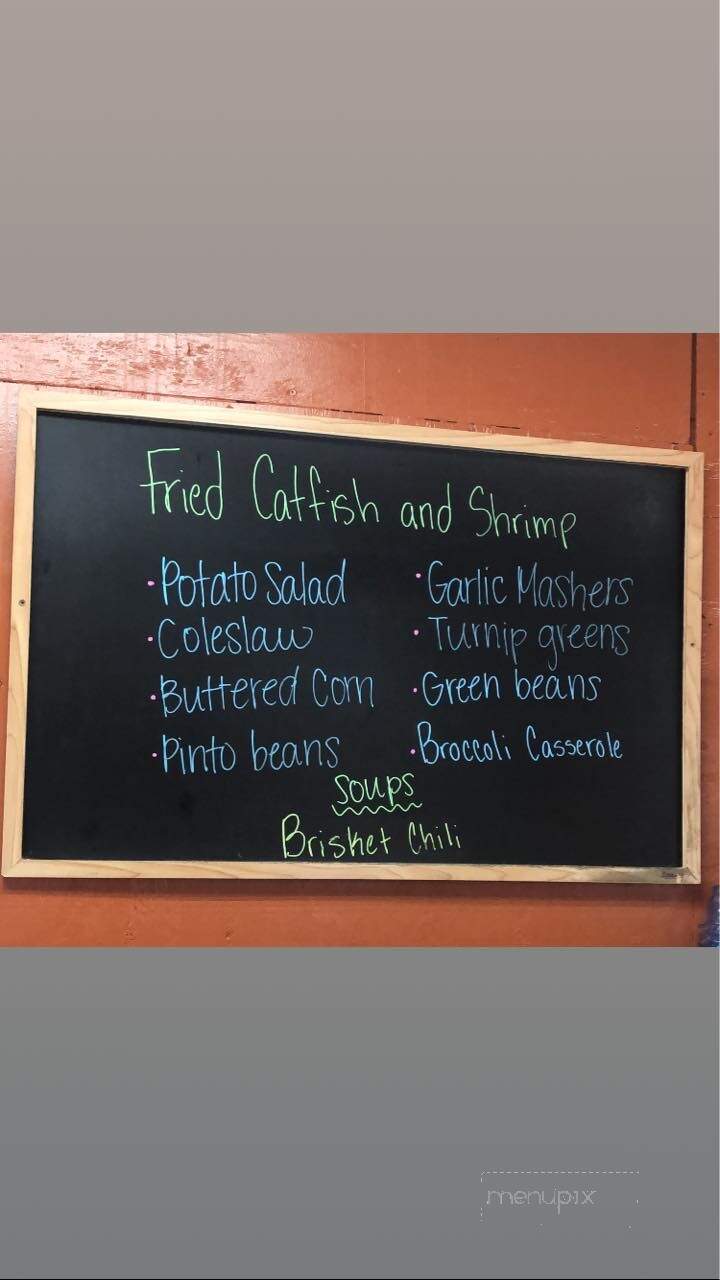 Fried Catfish and Shrimp
· Potato Salad
· Coleslaw
· Buttered Corn
· Pinto beans
· Garlic Mashers
· Turnip greens
· Green beans
· Broccoli Casserole
Soups
Brisket Chili
menupix